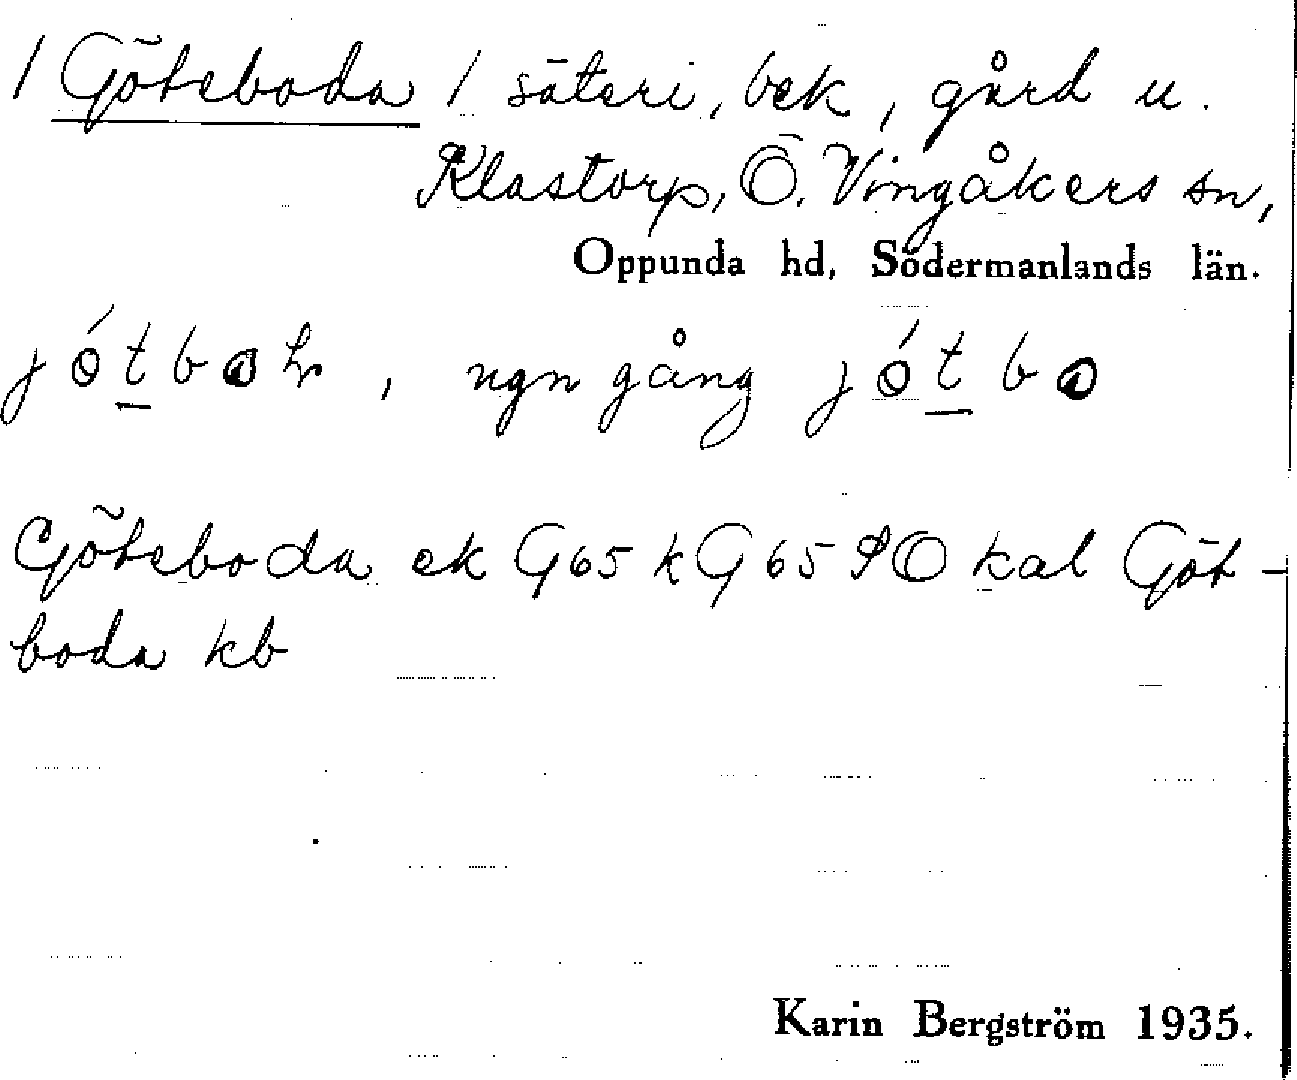 / Göteboda / säteri, bek, gård u.
Klastorp, Ö. Vingåkers sn,
Oppunda hd, Södermanlands län.
ngn gång
Göteboda ek G65 kG65 PO kal Göt-
boda kb
Karin Bergström 1935.